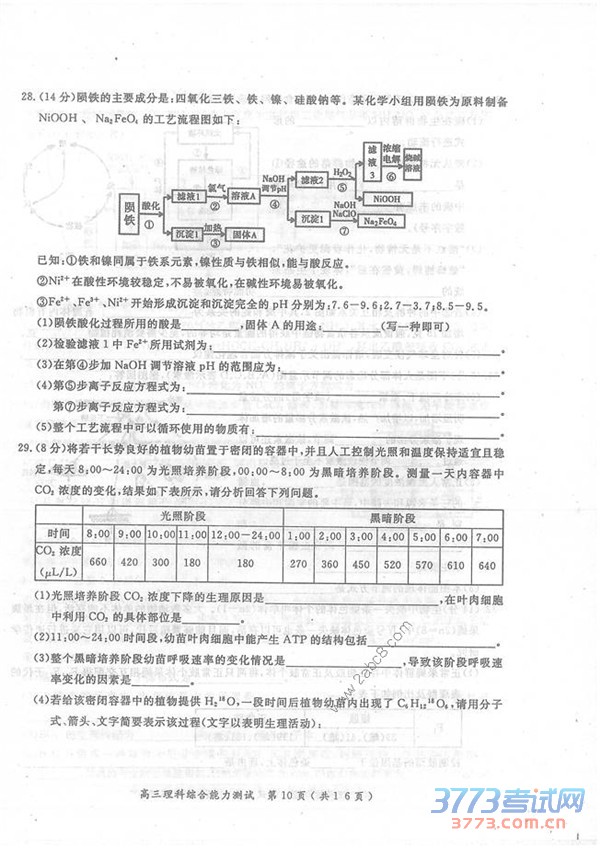 28.(14分)陨铁的主要成分是:四氧化三铁、铁、镍、硅酸钠等。某化学小组用陨铁为原料制备
NiOOH、Na₂FeO₄的工艺流程图如下:
陨铁
酸化
①
滤液1
氯气
②
溶液A
NaOH
调节pH
④
滤液2
H₂O₂
⑤
滤液3
浓缩
电解
⑥
烧碱
溶液
NiOOH
沉淀1
加热
③
固体A
沉淀1
NaOH
NaClO
⑦
Na₂FeO₄
已知:①铁和镍同属于铁系元素,镍性质与铁相似,能与酸反应。
②Ni²⁺在酸性环境较稳定,不易被氧化,在碱性环境易被氧化。
③Fe²⁺、Fe³⁺、Ni²⁺开始形成沉淀和沉淀完全的pH分别为:7.6-9.6;2.7-3.7;8.5-9.5。
(1)陨铁酸化过程所用的酸是________,固体A的用途:________(写一种即可)
(2)检验滤液1中Fe²⁺所用试剂为:________。
(3)在第④步加NaOH调节溶液pH的范围应为:________。
(4)第⑤步离子反应方程式为:________
第⑦步离子反应方程式为:________
(5)整个工艺流程中可以循环使用的物质有:________。
29.(8分)将若干长势良好的植物幼苗置于密闭的容器中,并且人工控制光照和温度保持适宜且稳
定,每天8:00~24:00为光照培养阶段,00:00~8:00为黑暗培养阶段。测量一天内容器中
CO₂浓度的变化,结果如下表所示,请分析回答下列问题。
光照阶段 黑暗阶段
时间 8:00 9:00 10:00 11:00 12:00-24:00 1:00 2:00 3:00 4:00 5:00 6:00 7:00
CO₂浓度(μL/L) 660 420 300 180 180 270 360 450 520 570 610 640
(1)光照培养阶段CO₂浓度下降的生理原因是________,在叶肉细胞
中利用CO₂的具体部位是________。
(2)11:00~24:00时间段,幼苗叶肉细胞中能产生ATP的结构包括________。
(3)整个黑暗培养阶段幼苗呼吸速率的变化情况是________,导致该阶段呼吸速
率变化的因素是________。
(4)若给该密闭容器中的植物提供H₂¹⁸O,一段时间后植物幼苗内出现了C₆H₁₂¹⁸O₆,请用分子
式、箭头、文字简要表示该过程(文字以表明生理活动):
www.2abc8.com
高三理科综合能力测试 第10页(共16页)
3773考试网
3773.com.cn
1